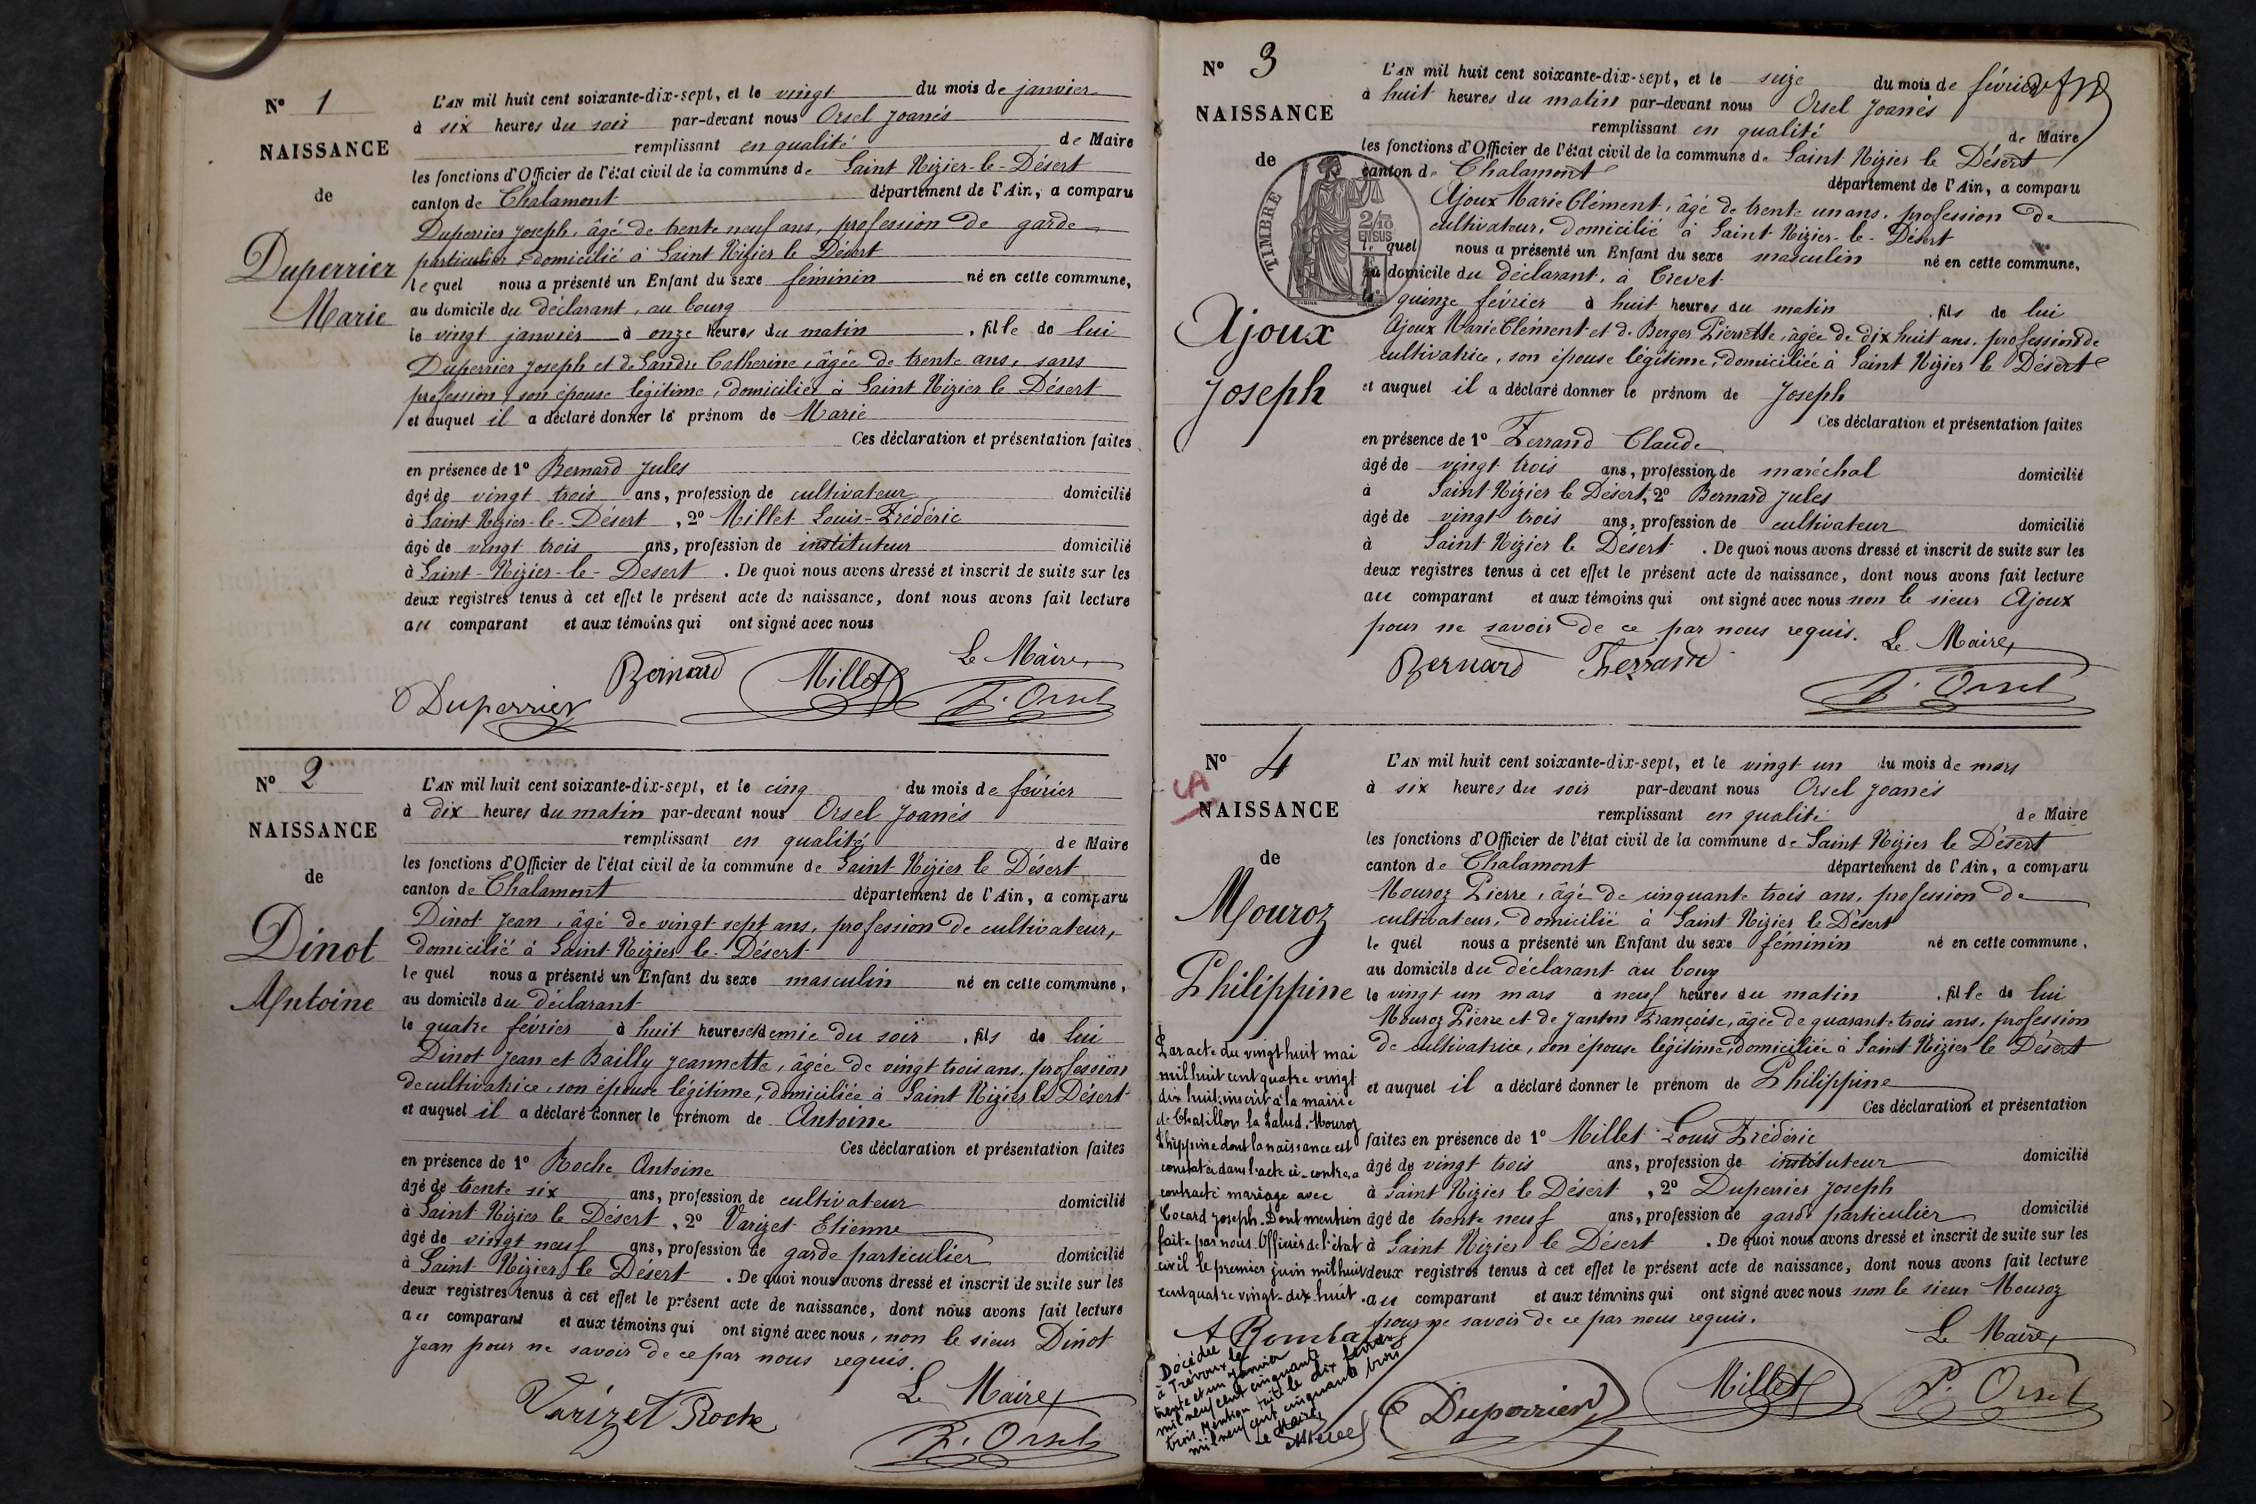 N° 1
NAISSANCE
de
Duperrier
Marie
L'AN mil huit cent soixante-dix-sept, et le vingt du mois de janvier
à six heures du soir par-devant nous Orsel Joanès
remplissant en qualité de Maire
les fonctions d'Officier de l'état civil de la commune de Saint Nizier-le-Désert
canton de Chalamont département de l'Ain, a comparu
Duperrier Joseph, âgé de trente neuf ans, profession de garde
particulier, domicilié à Saint Nizier le Désert
le quel nous a présenté un Enfant du sexe féminin né en cette commune,
au domicile du déclarant, au bourg
le vingt janvier à onze heures du matin, fille de lui
Duperrier Joseph et de Landre Catherine, âgée de trente ans, sans
profession, son épouse légitime, domiciliée à Saint Nizier le Désert
et auquel il a déclaré donner le prénom de Marie
Ces déclaration et présentation faites
en présence de 1° Bernard Jules
âgé de vingt trois ans, profession de cultivateur domicilié
à Saint Nizier-le-Désert, 2° Millet Louis-Frédéric
âgé de vingt trois ans, profession de instituteur domicilié
à Saint-Nizier-le-Desert. De quoi nous avons dressé et inscrit de suite sur les
deux registres tenus à cet effet le présent acte de naissance, dont nous avons fait lecture
au comparant et aux témoins qui ont signé avec nous
Le Maire,
Duperrier Bernard Millet J. Orsel
N° 2
NAISSANCE
de
Dinot
Antoine
L'AN mil huit cent soixante-dix-sept, et le cinq du mois de février
à dix heures du matin par-devant nous Orsel Joanès
remplissant en qualité de Maire
les fonctions d'Officier de l'état civil de la commune de Saint Nizier le Désert
canton de Chalamont département de l'Ain, a comparu
Dinot Jean, âgé de vingt sept ans, profession de cultivateur,
domicilié à Saint Nizier le Désert
le quel nous a présenté un Enfant du sexe masculin né en cette commune,
au domicile du déclarant
le quatre février à huit heures et demie du soir, fils de lui
Dinot Jean et Bailly Jeannette, âgée de vingt trois ans, profession
de cultivatrice, son épouse légitime, domiciliée à Saint Nizier le Désert
et auquel il a déclaré donner le prénom de Antoine
Ces déclaration et présentation faites
en présence de 1° Roche Antoine
âgé de trente six ans, profession de cultivateur domicilié
à Saint Nizier le Désert, 2° Varizet Etienne
âgé de vingt neuf ans, profession de garde particulier domicilié
à Saint Nizier le Désert. De quoi nous avons dressé et inscrit de suite sur les
deux registres tenus à cet effet le présent acte de naissance, dont nous avons fait lecture
au comparant et aux témoins qui ont signé avec nous, non le sieur Dinot
Jean pour ne savoir de ce par nous requis.
Le Maire,
Varizet Roche J. Orsel
N° 3
NAISSANCE
de
TIMBRE
2/10
EN SUS
Ajoux
Joseph
L'AN mil huit cent soixante-dix-sept, et le seize du mois de février
à huit heures du matin par-devant nous Orsel Joanès
remplissant en qualité de Maire
les fonctions d'Officier de l'état civil de la commune de Saint Nizier le Désert
canton de Chalamont département de l'Ain, a comparu
Ajoux Marie Clément, âgé de trente un ans, profession de
cultivateur, domicilié à Saint Nizier-le-Désert
le quel nous a présenté un Enfant du sexe masculin né en cette commune,
au domicile du déclarant, à Crevet
le quinze février à huit heures du matin, fils de lui
Ajoux Marie Clément et de Berger Pierrette, âgée de dix huit ans, profession de
cultivatrice, son épouse légitime, domiciliée à Saint Nizier le Désert
et auquel il a déclaré donner le prénom de Joseph
Ces déclaration et présentation faites
en présence de 1° Ferrand Claude
âgé de vingt trois ans, profession de maréchal domicilié
à Saint Nizier le Désert, 2° Bernard Jules
âgé de vingt trois ans, profession de cultivateur domicilié
à Saint Nizier le Désert. De quoi nous avons dressé et inscrit de suite sur les
deux registres tenus à cet effet le présent acte de naissance, dont nous avons fait lecture
au comparant et aux témoins qui ont signé avec nous non le sieur Ajoux
pour ne savoir de ce par nous requis. Le Maire,
Bernard Ferrand J. Orsel
N° 4
NAISSANCE
de
Mouroz
Philippine
L'AN mil huit cent soixante-dix-sept, et le vingt un du mois de mars
à six heures du soir par-devant nous Orsel Joanès
remplissant en qualité de Maire
les fonctions d'Officier de l'état civil de la commune de Saint Nizier le Désert
canton de Chalamont département de l'Ain, a comparu
Mouroz Pierre, âgé de cinquante trois ans, profession de
cultivateur, domicilié à Saint Nizier le Désert
le quel nous a présenté un Enfant du sexe féminin né en cette commune,
au domicile du déclarant au bourg
le vingt un mars à neuf heures du matin, fille de lui
Mouroz Pierre et de Janton Françoise, âgée de quarante trois ans, profession
de cultivatrice, son épouse légitime, domiciliée à Saint Nizier le Désert
et auquel il a déclaré donner le prénom de Philippine
Ces déclaration et présentation
faites en présence de 1° Millet Louis Frédéric
âgé de vingt trois ans, profession de instituteur domicilié
à Saint Nizier le Désert, 2° Duperrier Joseph
âgé de trente neuf ans, profession de garde particulier domicilié
à Saint Nizier le Désert. De quoi nous avons dressé et inscrit de suite sur les
deux registres tenus à cet effet le présent acte de naissance, dont nous avons fait lecture
au comparant et aux témoins qui ont signé avec nous non le sieur Mouroz
pour ne savoir de ce par nous requis.
Le Maire,
Duperrier Millet J. Orsel
Par acte du vingt huit mai
mil huit cent quatre vingt
dix huit, inscrit à la mairie
de Chatillon la Palud, Mouroz
Phippine dont la naissance est
constatée dans l'acte ci-contre, a
contracté mariage avec
Cocard Joseph. Dont mention
faite par nous Officier de l'état
civil le premier juin mil huit
cent quatre vingt-dix huit.
Décédée
à Trévoux le
trente et un janvier
mil neuf cent cinquante
trois. Mention faite le dix février
mil neuf cent cinquante trois
Le Maire,